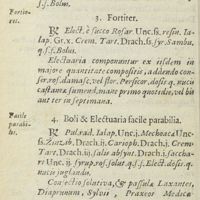 q.s.f. Bolus.
Fortio-
res.
3. Fortiter.
℞ Elect. è succo Rosar. Unc. ſs. resin. Ia-
lap. Gr. x. Crem. Tart. Drach. ſs. syr. Sambu.
q. s. f. Bolus.
Electuaria componuntur ex iisdem in
majore quantitate compositis, a dilucido con-
ser. dosi, à ramel, dissol. Fere posit. dosis: q. nucis
castaneæ sumend. mane primo quotidie, vel bis
aut ter in septimana.
Facile
parabi-
lis.
4. Boli & Electuaria facile parabilia.
℞ Pul. rad. Ialap. Unc. j. Mechoacæ Unc.
ſs. Zinzib. Drach. ij. Carioph. Drach. j. Crem.
Tart. Drach. iij. salis absynt. Drach. j. sacchar.
Unc. ij. syrup. ros. solut. q. s. f. Elect. dosis: q.
nucis juglandis.
Confectio solutiva, & passulæ Laxantes,
Diaprunum, Sylvii, Praxeos Medicæ